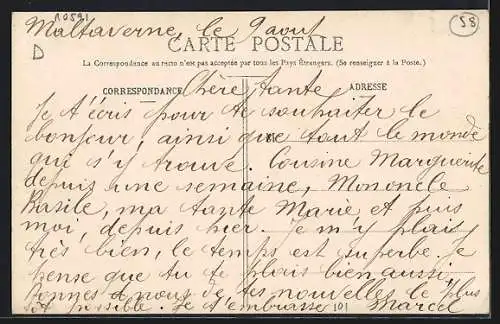 10591
Maltaverne, le 9 aout
58
D
CARTE POSTALE
La Correspondance au recto n'est pas acceptée par tous les Pays Étrangers. (Se renseigner à la Poste.)
CORRESPONDANCE
ADRESSE
Chère tante
Je t'écris pour te souhaiter le
bonjour, ainsi que tout le monde
qui s'y trouve. Cousine Marguerite
depuis une semaine, Mononcle
Basile, ma tante Marie et puis
moi, depuis hier. Je m'y plais
très bien, le temps est superbe. Je
pense que tu te plais bien aussi
Donnes-nous de tes nouvelles le plus
tôt possible. Je t'embrasse Marcel
101